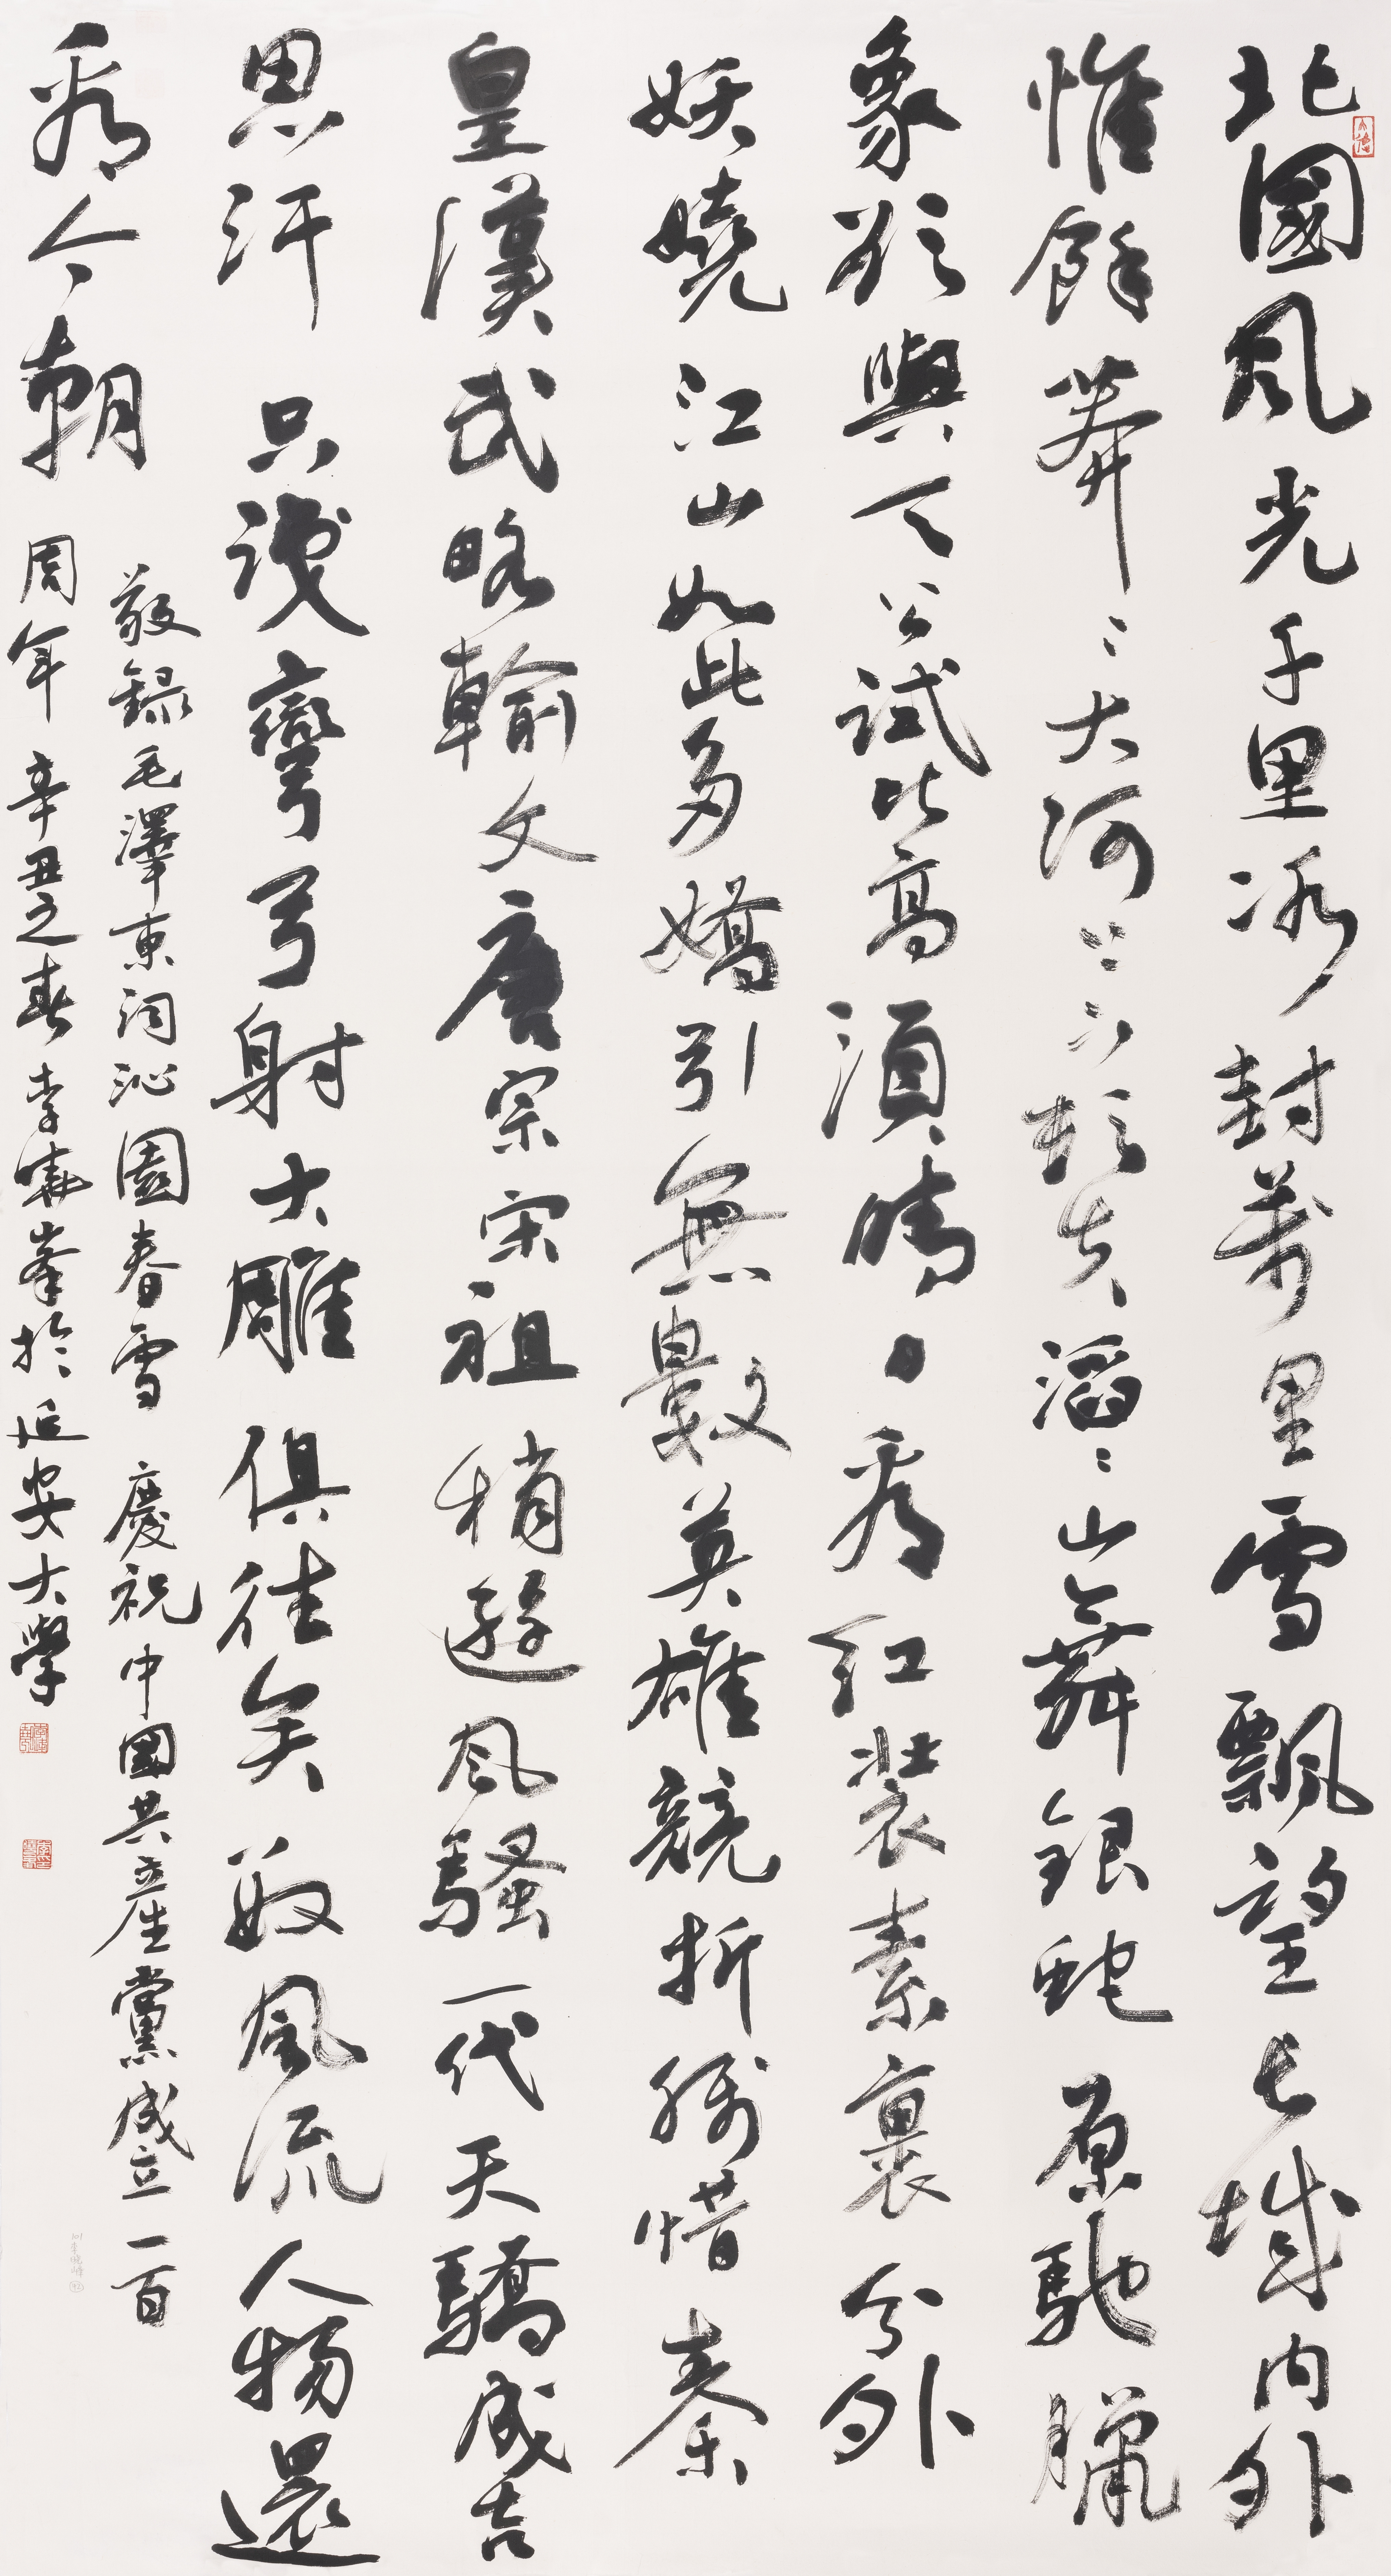 北國風光千里冰封萬里雪飄望長城内外
惟餘莽〻大河上下頓失滔〻山舞銀蛇原馳臘
象欲與天公試比高須晴日看紅裝素裹分外
妖嬈江山如此多嬌引無數英雄競折腰惜秦
皇漢武略輸文唐宗宋祖稍遜風騷一代天驕成吉
思汗只識彎弓射大雕俱往矣數風流人物還
看今朝
敬錄毛澤東詞沁園春雪 慶祝中國共產黨成立一百
周年 辛丑之春 李曉峯於延安大學